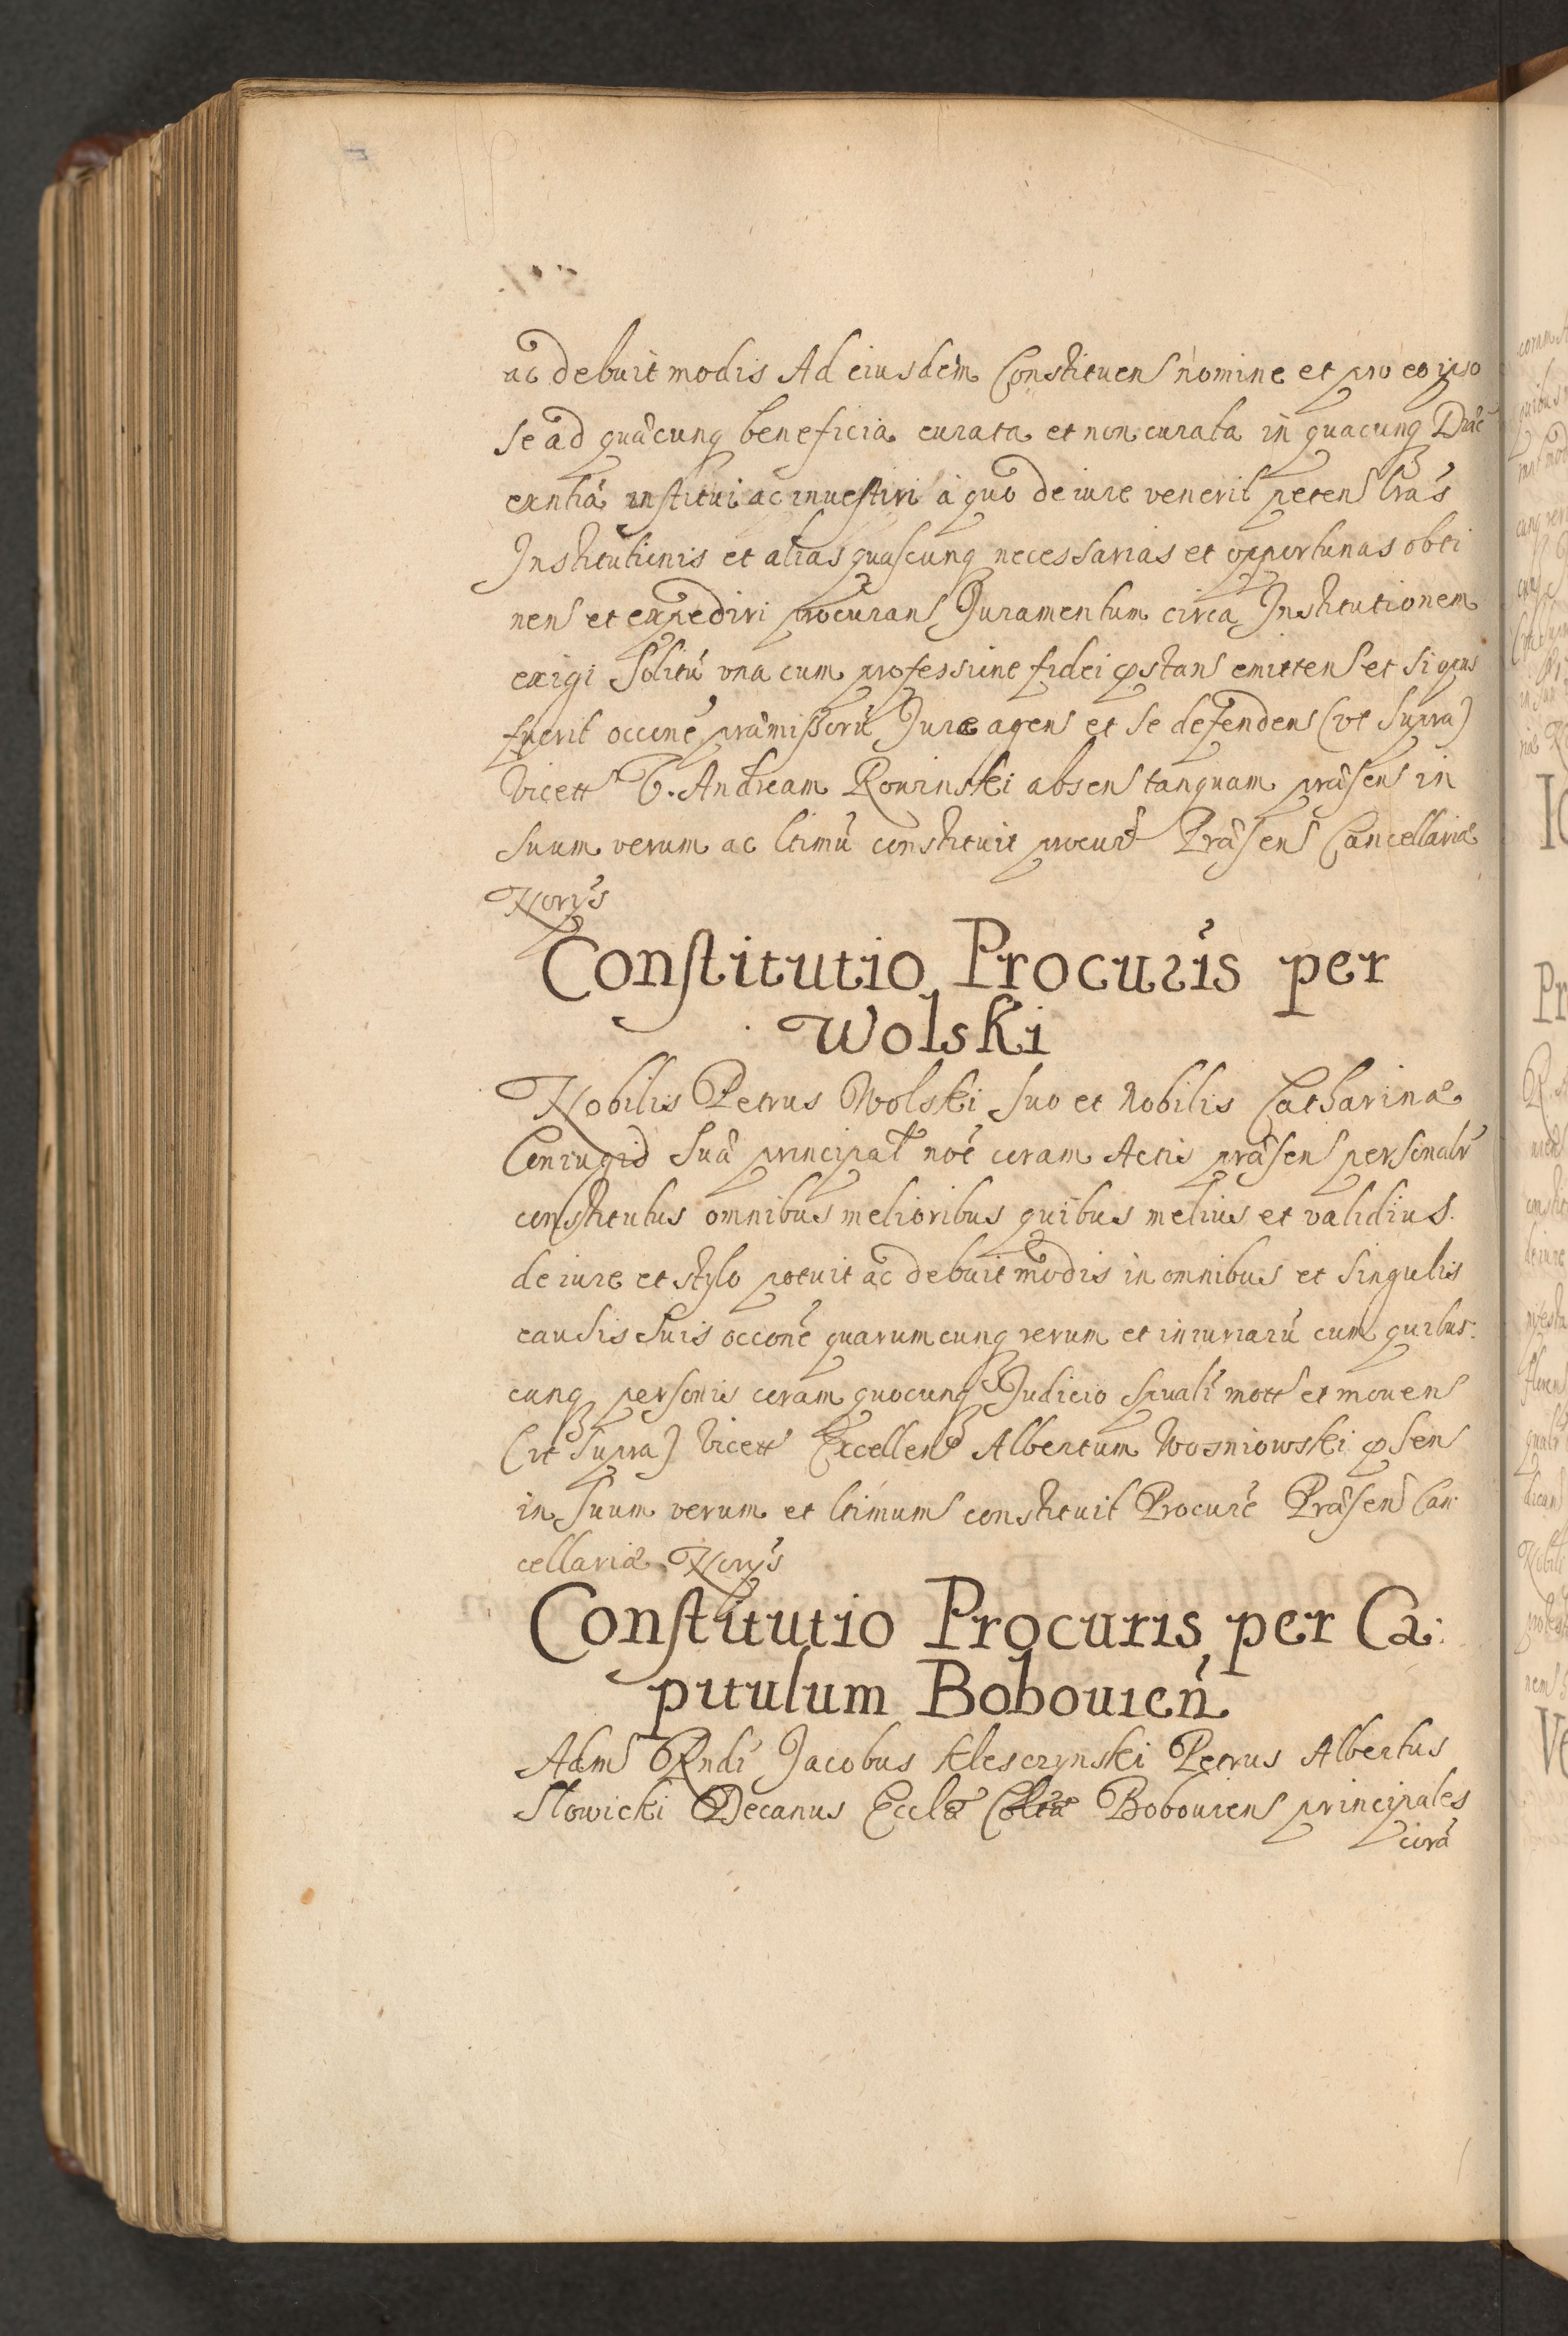 ac debuit modis Ad eiusdem Constituen nomine et pro eo ipso
se ad quæcunq beneficia curata et non curata in quacunq Diæc
exntia institui ac inuestiri à quo de iure venerit peten lras
Institutionis et alias quascunq necessarias et opportunas obti
nen et expediri procuran Juramentum circa Institutionem
exigi solitũ vna cum professione fidei pstan emitten et si opus
fuerit occone præmissorũ Jure agen et se defenden (vt supra)
Vicett V. Andream Rowinski absen tanquam præsen in
suum verum ac ltimũ constituit procur Præsen Cancellariæ
Norijs
Constitutio Procuris per
Wolski
Nobilis Petrus Wolski suo et Nobilis Catharinæ
Coniugis suæ principal noe coram Actis præsen personalr
constitutus omnibus melioribus quibus melius et validius
de iure et stylo potuit ac debuit modis in omnibus et singulis
causis suis occone quarumcunq rerum et iniuriarũ cum quibus:
cunq personis coram quocunq Judicio spuali mott et mouen
(vt supra) Vicett Excellen Albertum Wosniowski psen
in suum verum et ltimum constituit Procure Præsen Can:
cellariæ Norijs
Constitutio Procuris per Ca:
pitulum Bobouien
Adm Rndi Jacobus Klesczynski Petrus Albertus
Slowicki Decanus Eccle Bobouien principales
corã